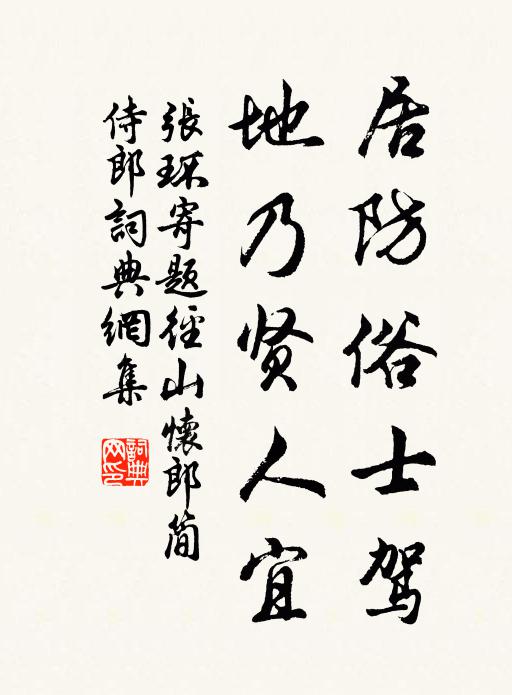 居防俗士驾
地乃贤人宜
張琛寄题徑山懷郎简
侍郎詞典網集
詞典
网印